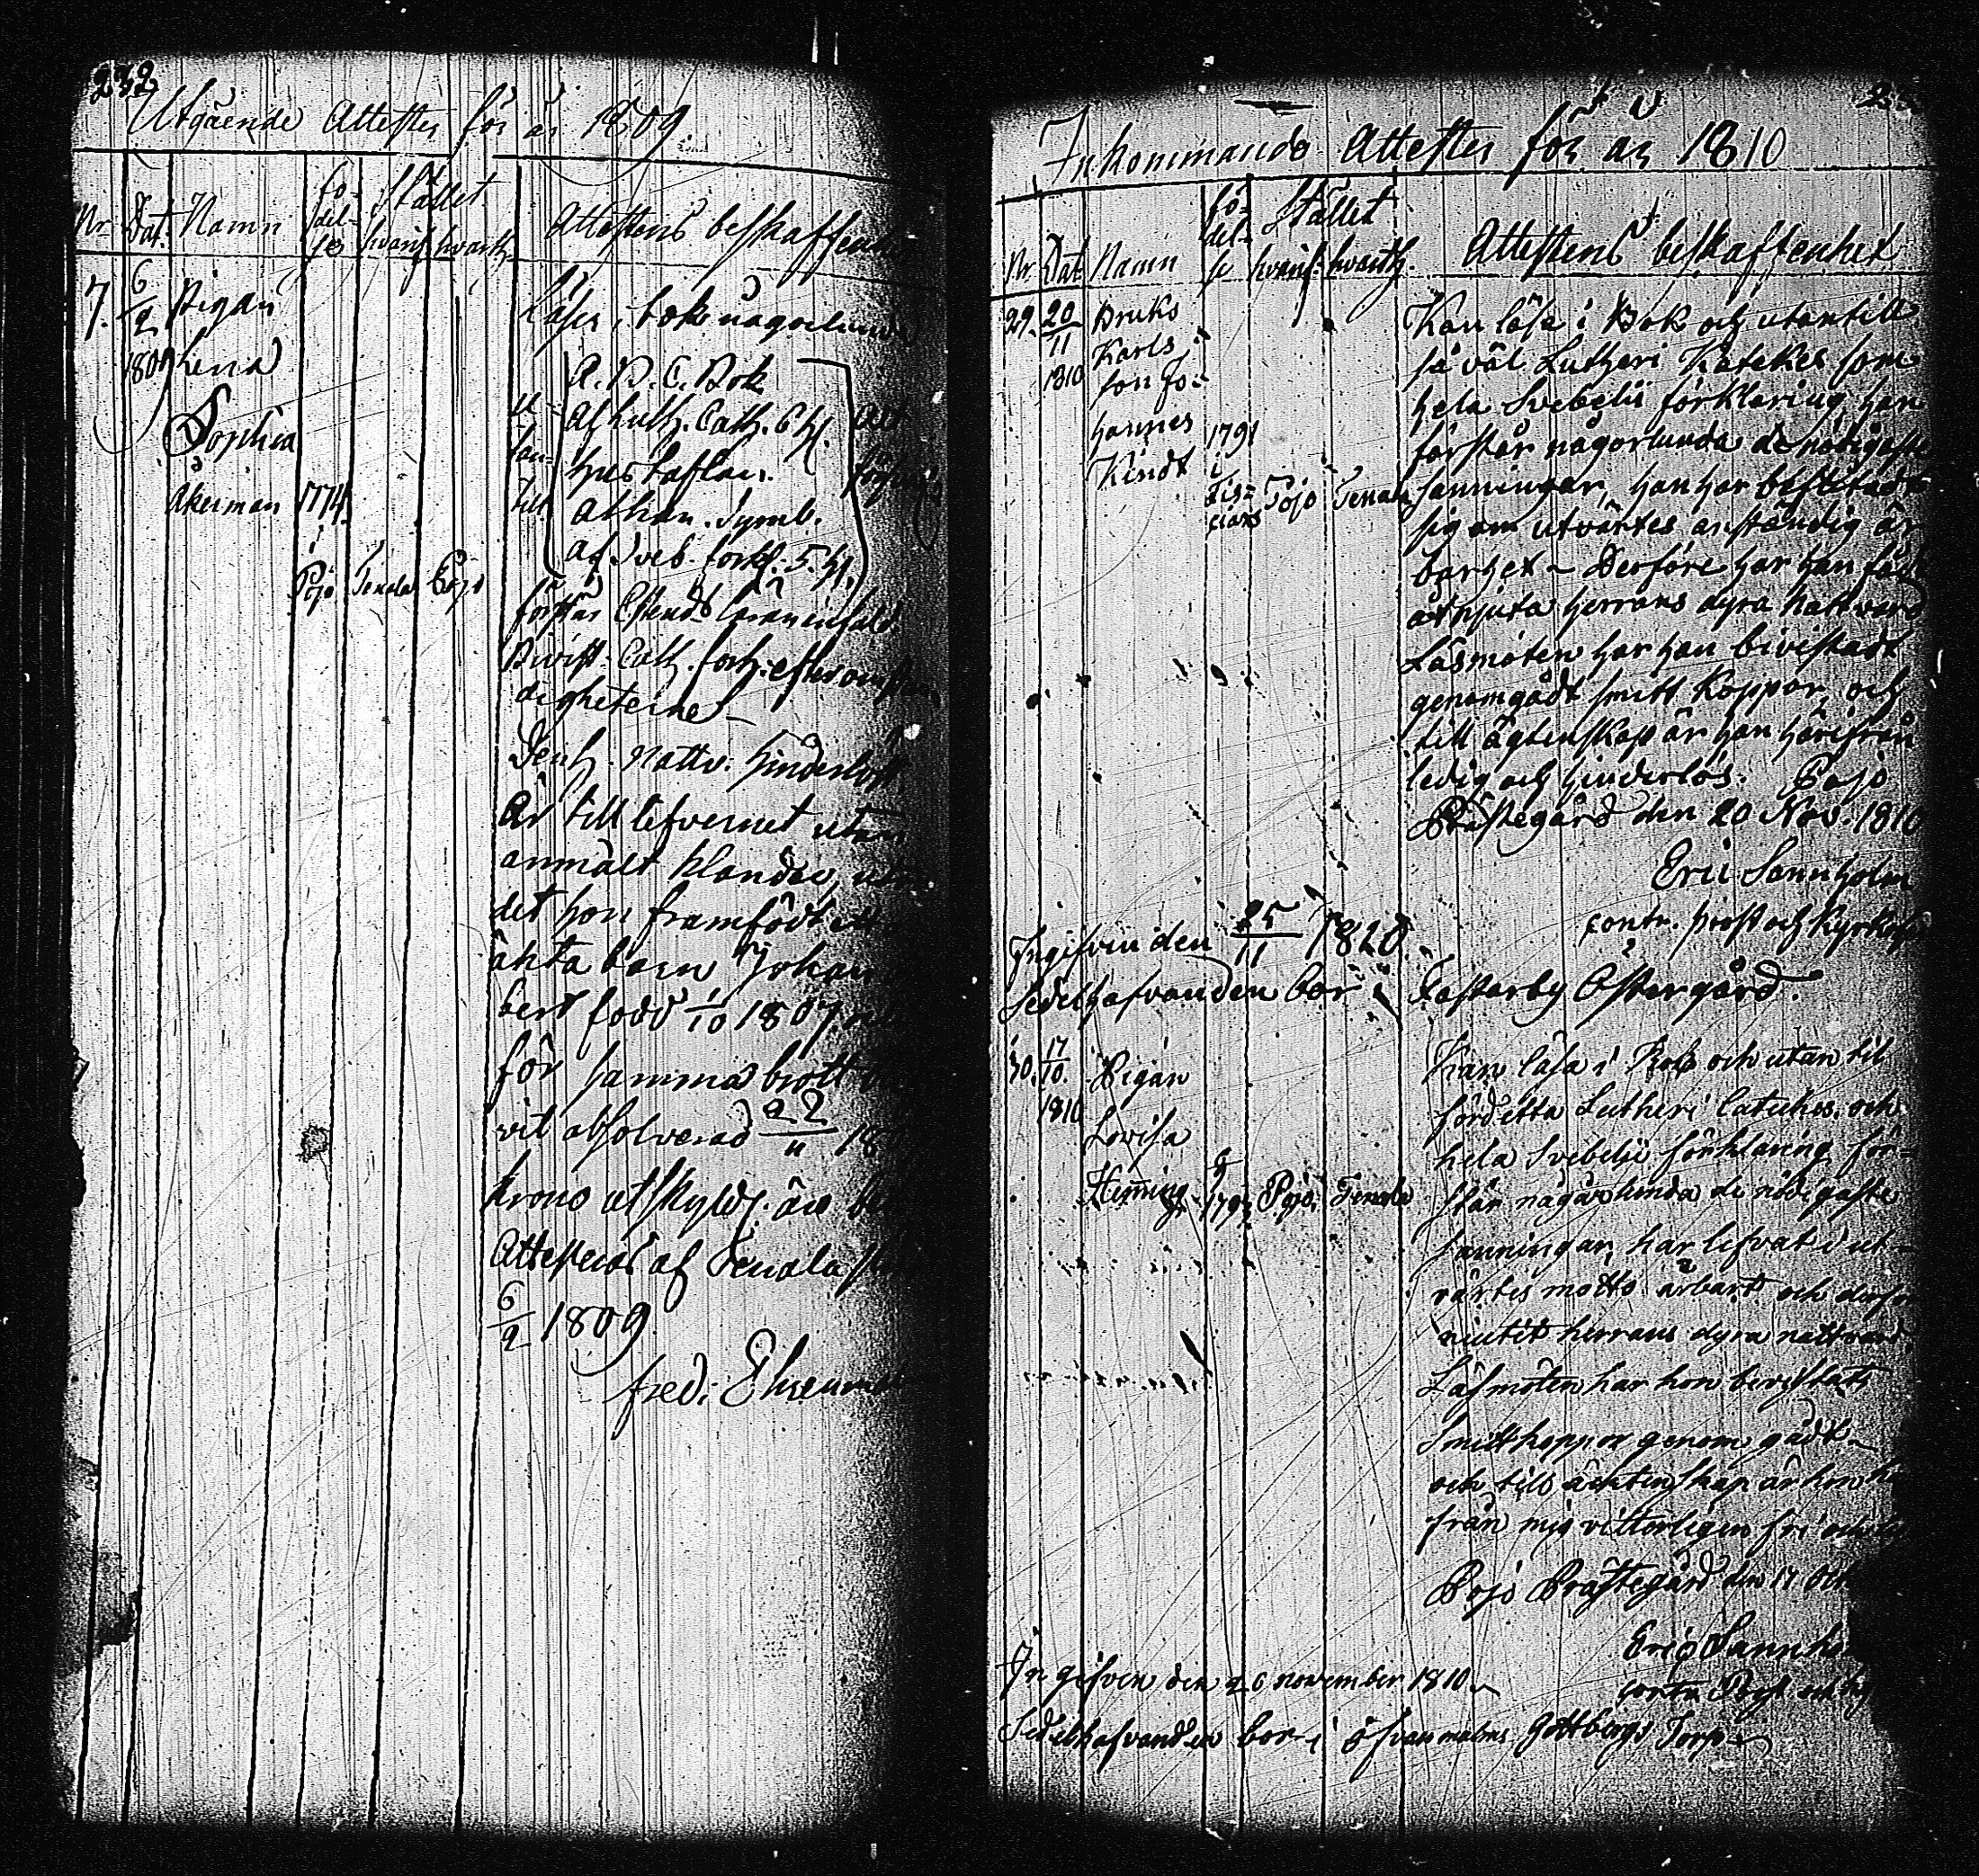 232
Utgående Attester för år 1809.
Nr Dat. Namn fö-del-se Stället hvarif. hvarth. Attestens beskaffen
7. 6/2 1809 Pigan
Lena
Sophia
Åkerman 1774
i
Pojo Tenala Pojo
Läser i bok någorlunda
utan till
A. B. C. Bok
Af Luth. Cath. 6 h.
hustaflan.
Athan. Symb.
Af Sveb. förkl. 5. h.
förstår
Bivist. Cath. förh. efter omstän
digheterne
Den h. nattv. hinderlöst
Är till lefvernet utan
anmält klander, utom
det hon framfödt ett
ächta barn Johan
född 1/10 1807
för samma brott
vit absolverad 22/11 18
krono utskyld. äro
Attesteras af Tenala
6/2 1809
fred: Ehrenm
Inkommande Attester för år 1810
Nr Dat Namn fö-del-se Stället hvarif. hvarth. Attestens beskaffenhet
29. 20/11 1810 Bruks
Karls
son Jo-
hannes
Kindt 1791 i Fis-
kars Pojo Tenala
Kan läsa i Bok och utantill
så väl Lutheri Katekes som
hela Svebelii förklaring han
förstår någorlunda de nödigaste
sanningar, han har beflitadt
sig om utvärtes anständig är
barhet – Derföre har han fådt
åtnjuta Herrans dyra Nattvard
Läsmöten har han bivistadt
genomgådt smitt Koppor och
till ägtenskap är han härifrån
ledig och hinderlös. Pojo
Prästegård den 20 Nov. 1810
Eric Sannholm
contr. prost och Kyrkoh
Ingifven den 25/11 1810.
Sedelhafvanden bor i Fasterby Östergård.
30. 17/10. 1810 Pigan
Lovisa
Fleming 1793 Pojo Tenala
Kan läsa i Bok och utan til
förd etta Lutheri catekes. och
hela Svebelii förklaring för-
står någårlunda de nödigaste
sanningar, har lefvat i ut-
värtes motto ärbart och derföre
niutit herrans dyra nattvard
Läsmöten har hon bevistatt
Smittkoppor genom gådt
och till ächtenskap är hon
från mig vitterligen fri och
Pojo Prästegård den 17 Oct
Eric Sannho
contr. Prost och
Ingifven den 26 november 1810.
Sedelhafvanden bor i Öfvan malms Gottbergs Torp